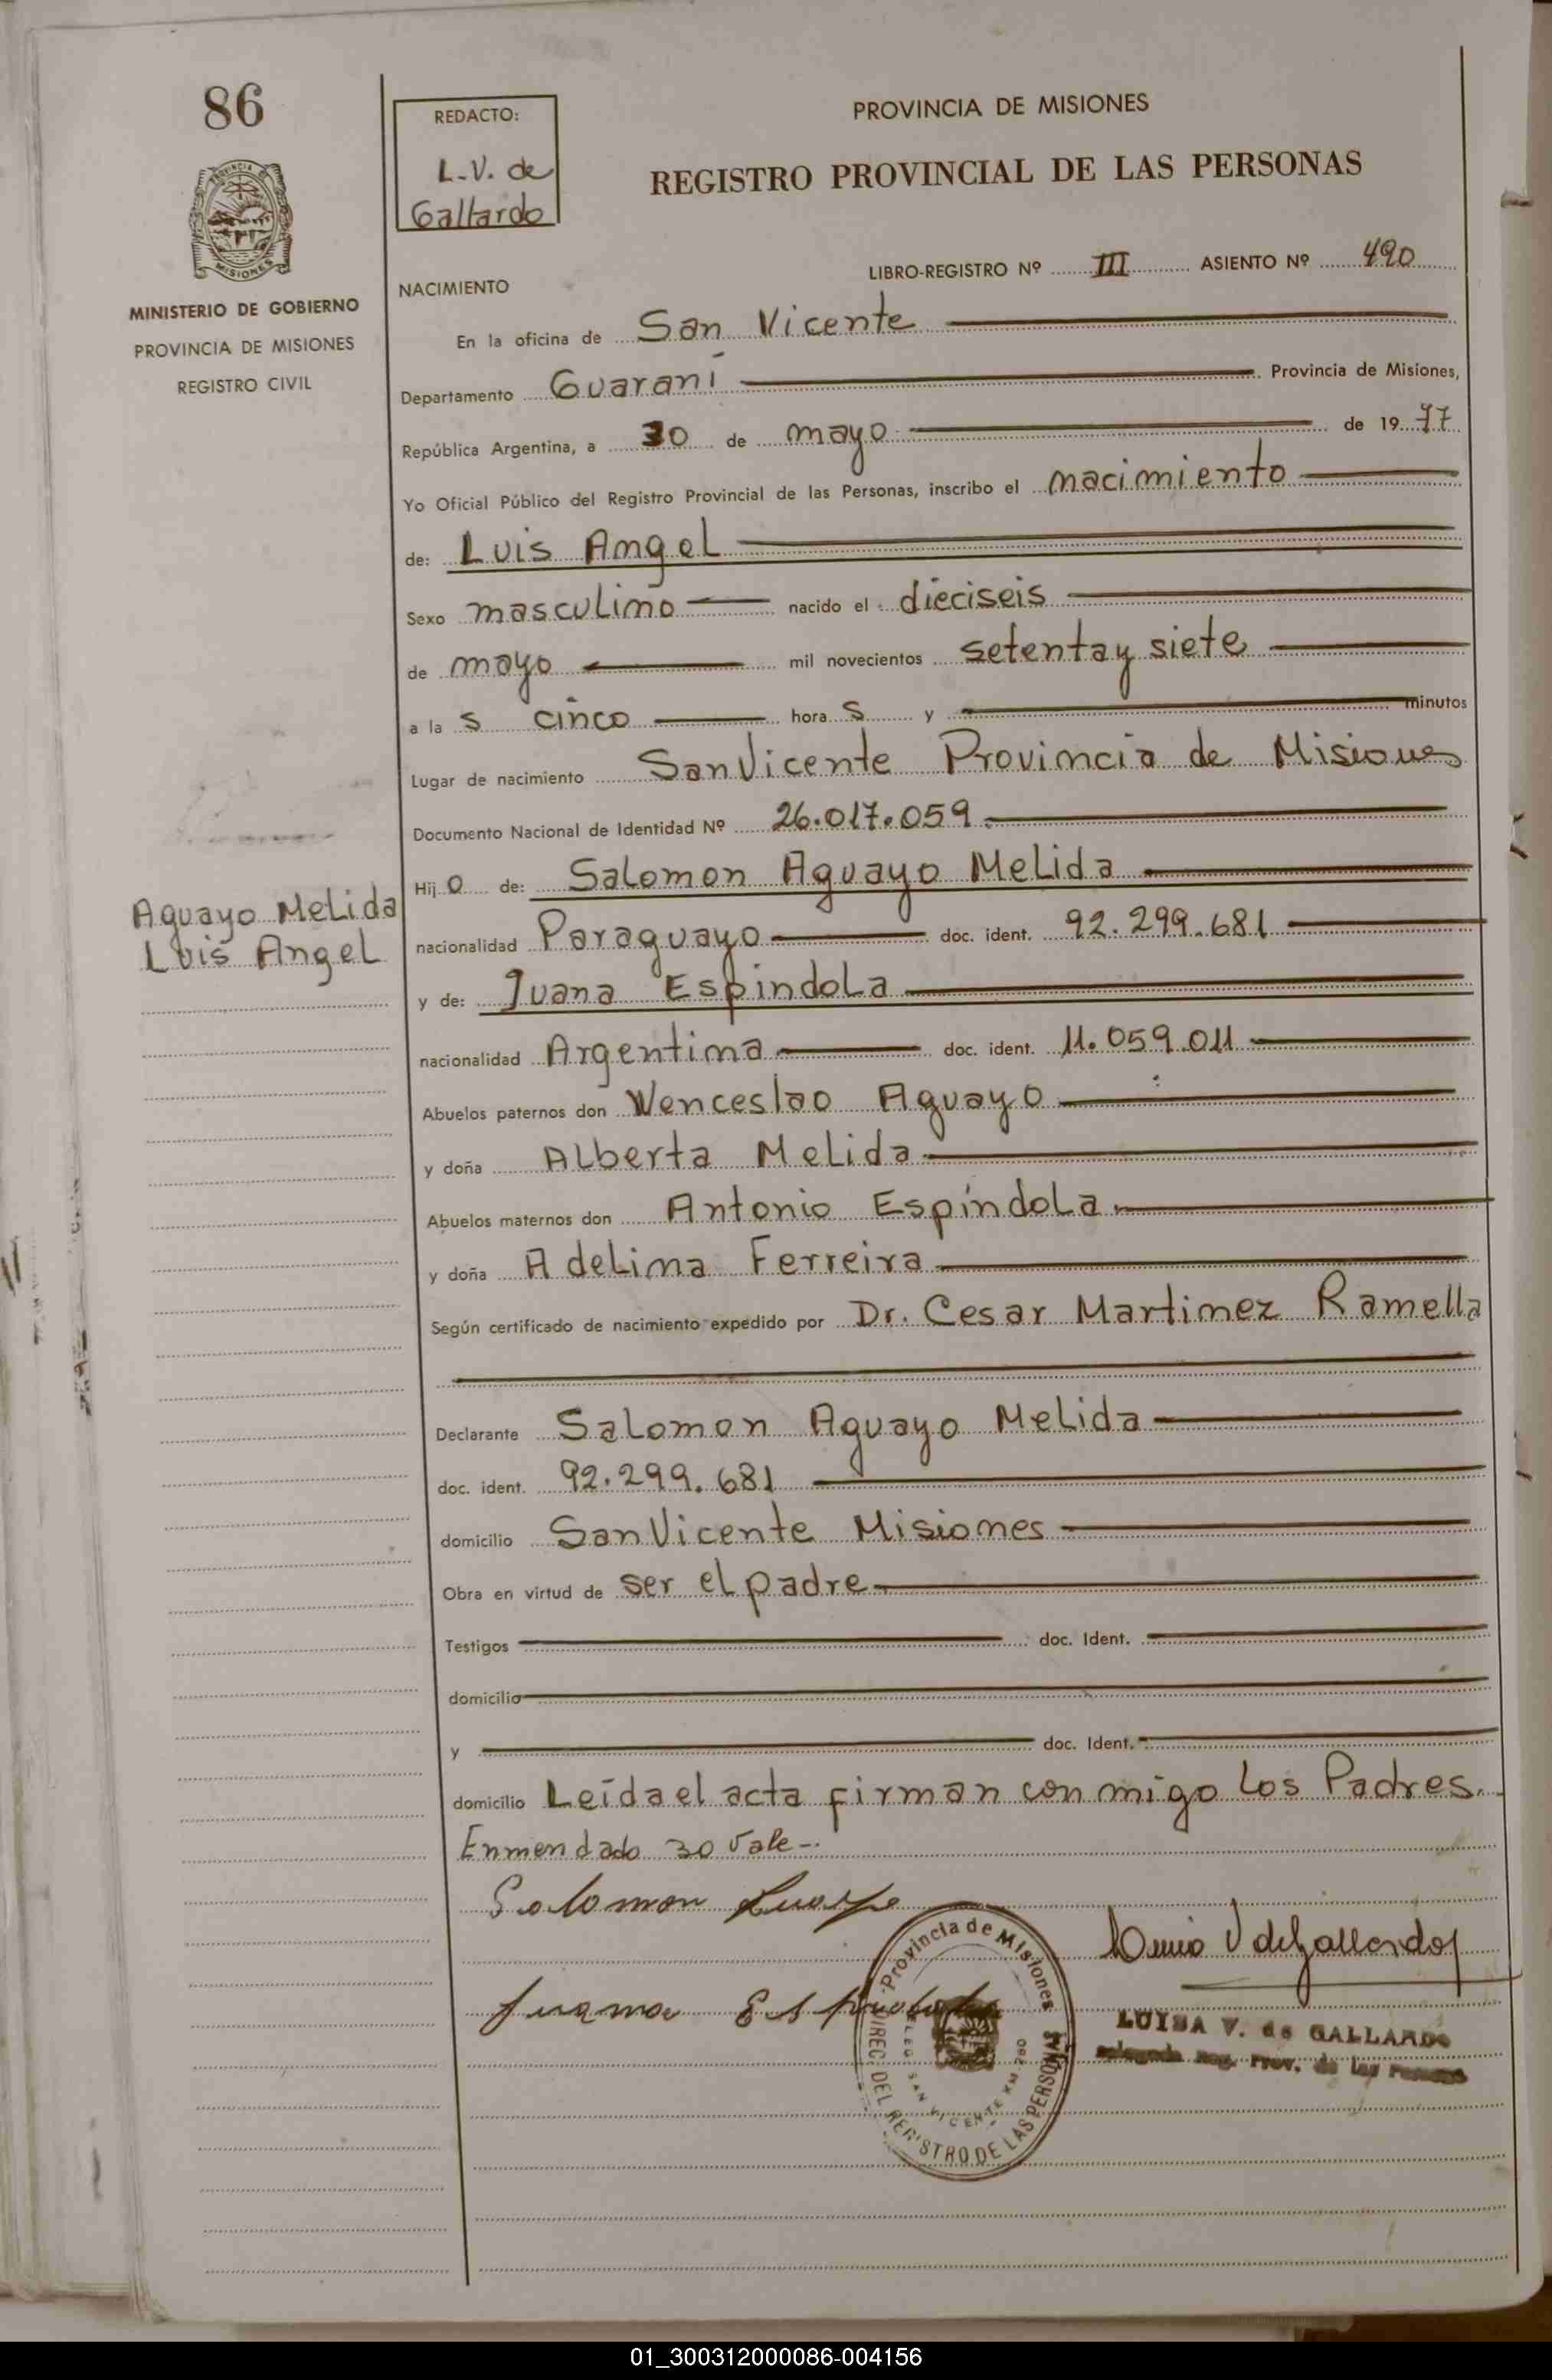 86
PROVINCIA DE
MISIONES
MINISTERIO DE GOBIERNO
PROVINCIA DE MISIONES
REGISTRO CIVIL
Aguayo Melida
Luis Angel
REDACTO:
L.V. de
Gallardo
PROVINCIA DE MISIONES
REGISTRO PROVINCIAL DE LAS PERSONAS
LIBRO-REGISTRO Nº III ASIENTO Nº 490
NACIMIENTO
En la oficina de San Vicente
Departamento Guaraní Provincia de Misiones,
República Argentina, a 30 de mayo de 1977
Yo Oficial Público del Registro Provincial de las Personas, inscribo el nacimiento
de: Luis Angel
Sexo masculino nacido el dieciseis
de mayo mil novecientos setenta y siete
a la s cinco hora s y minutos
Lugar de nacimiento San Vicente Provincia de Misiones
Documento Nacional de Identidad Nº 26.017.059.
Hij o de: Salomon Aguayo Melida
nacionalidad Paraguayo doc. ident. 92.299.681
y de: Juana Espindola
nacionalidad Argentina doc. ident. 11.059.011
Abuelos paternos don Wenceslao Aguayo
y doña Alberta Melida
Abuelos maternos don Antonio Espíndola
y doña Adelina Ferreira
Según certificado de nacimiento expedido por Dr. Cesar Martinez Ramella
Declarante Salomon Aguayo Melida
doc. ident. 92.299.681
domicilio San Vicente Misiones
Obra en virtud de ser el padre
Testigos doc. Ident.
domicilio
y doc. Ident.
domicilio Leída el acta firman conmigo los Padres.
Enmendado 30 Vale-.
Salomon
Juana Espindola
Luisa V de Gallardo
Provincia de Misiones
DIREC. DEL REGISTRO DE LAS PERSONAS
SAN VICENTE KM. 280
LUISA V. de GALLARDO
Delegada Reg. Prov. de las Personas
01_300312000086-004156